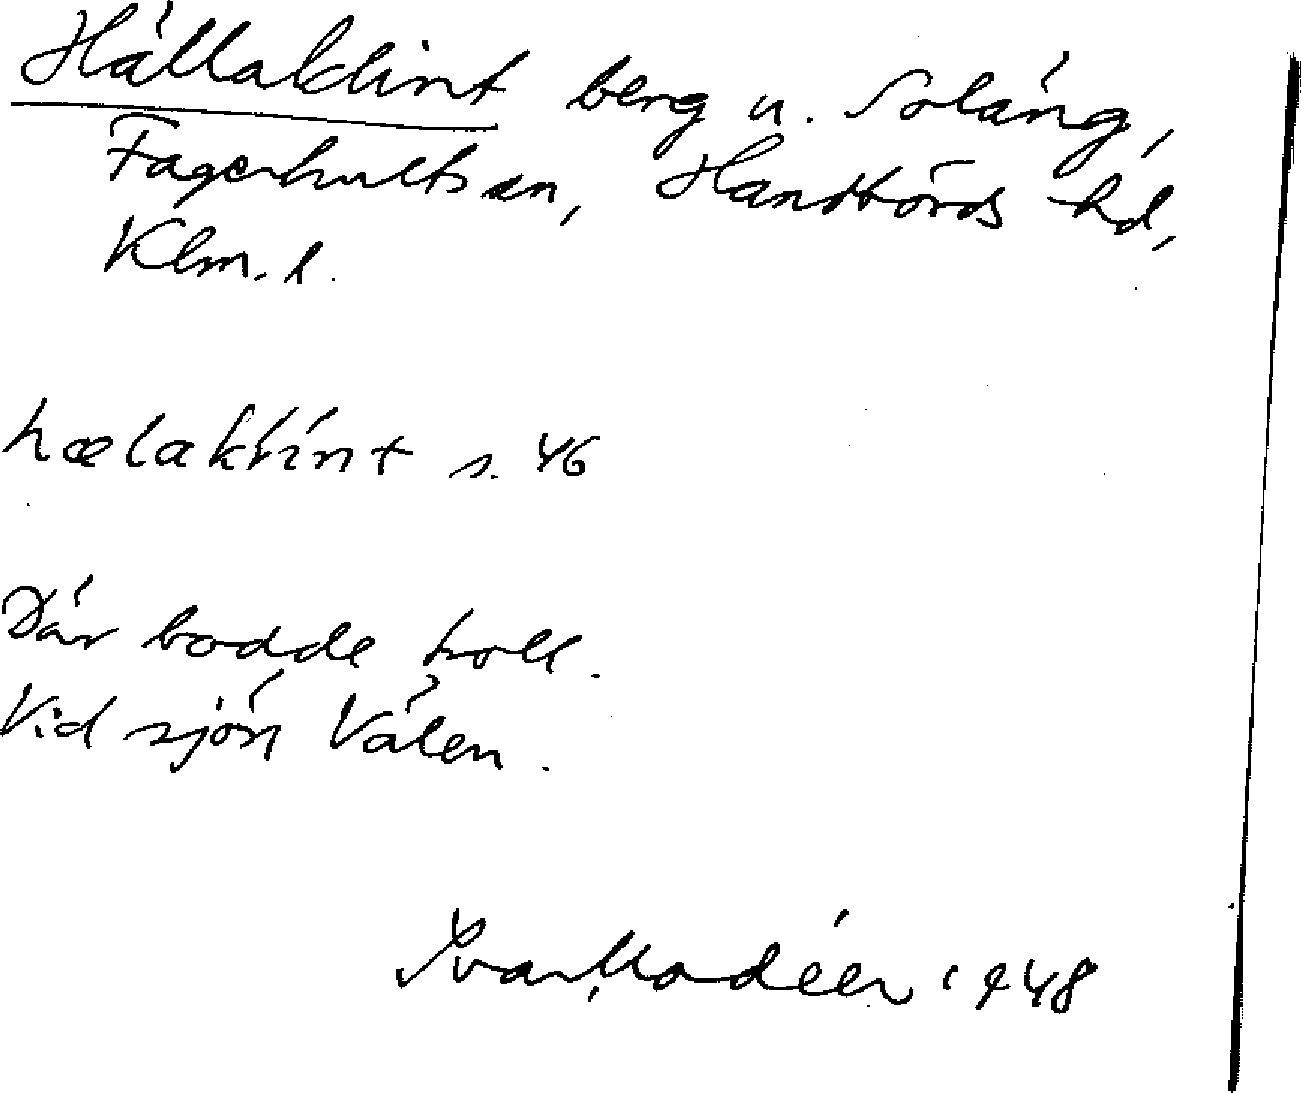 Hällaklint berg u. Soläng,
Fagerhults sn, Handbörds hd,
Klm. l.
hælaklint s. 46
Där bodde troll.
Vid sjön Välen.
Ivar Modéer 1948